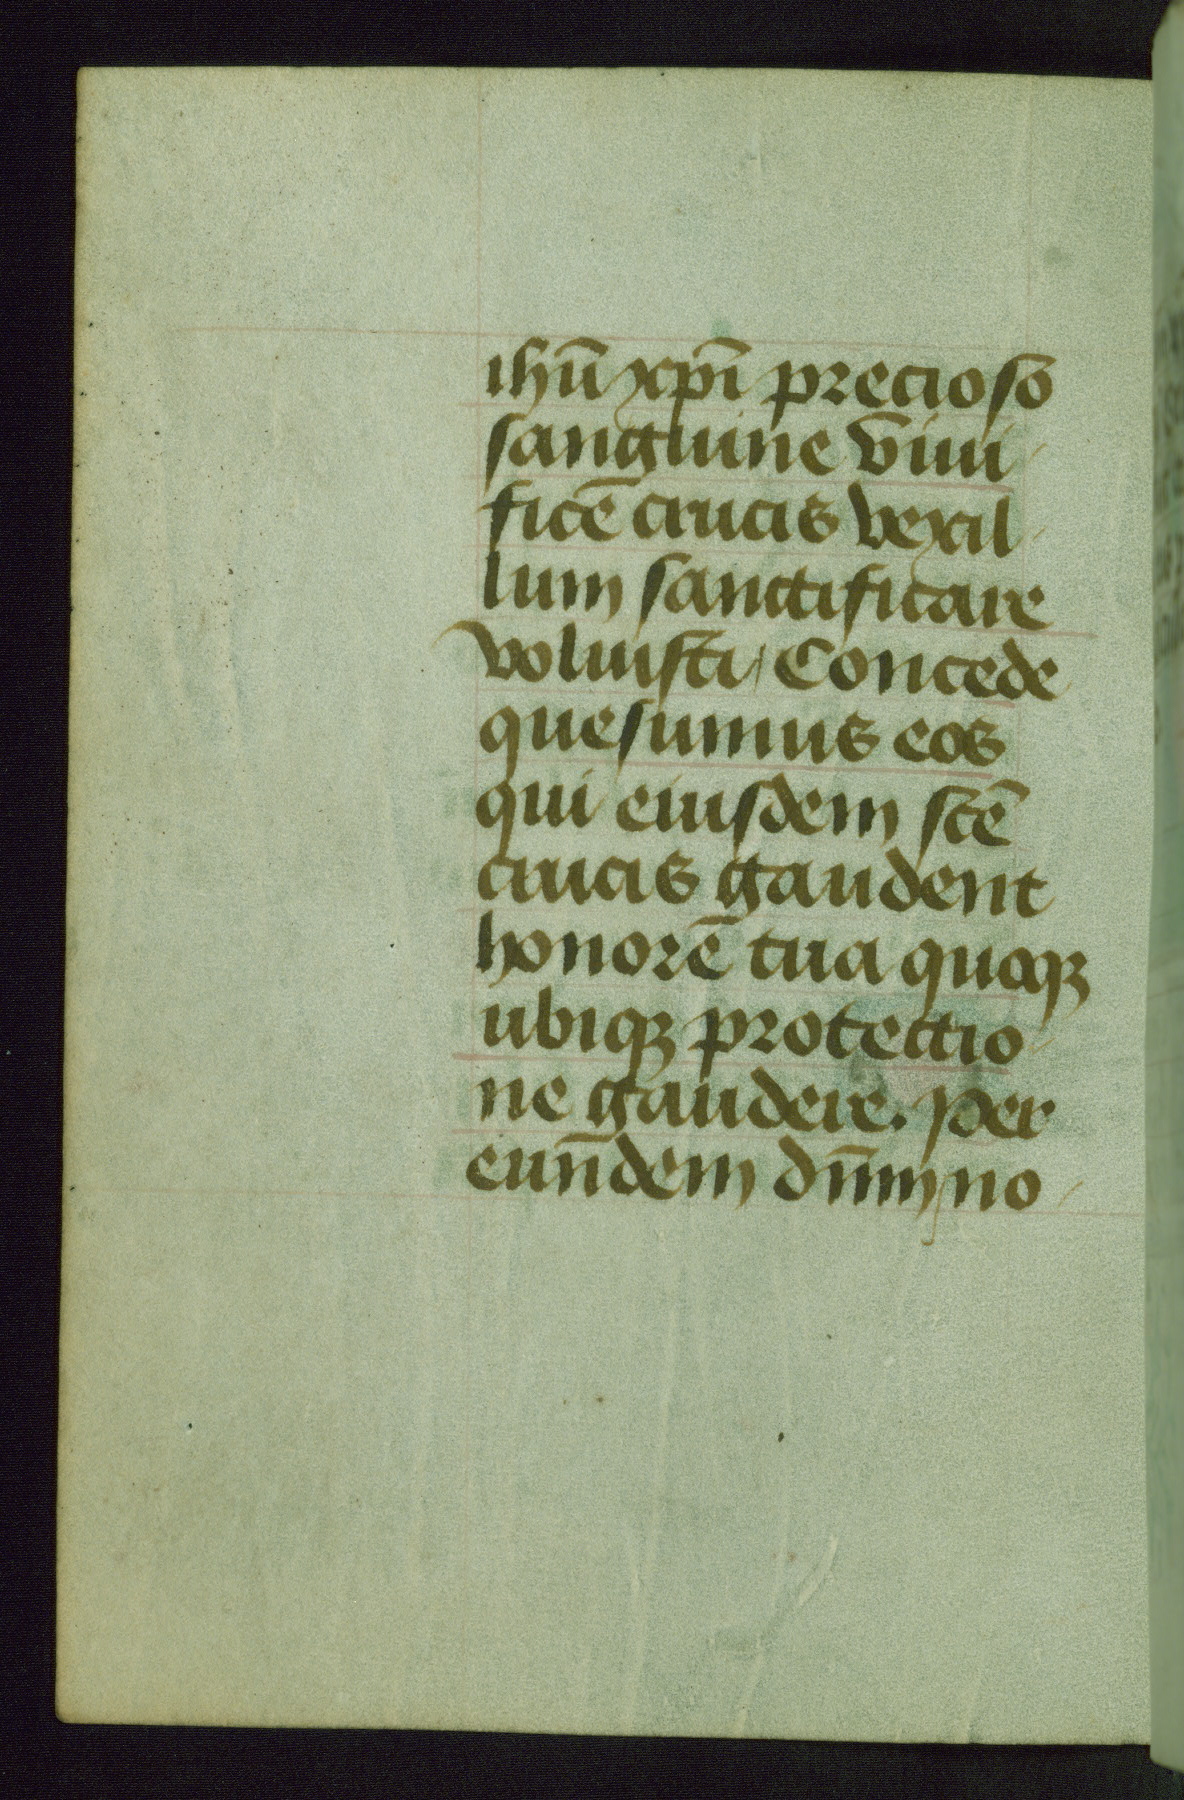 ihū xp̄i precioso
sanguine viui
ficē crucis vexil
lum sanctificare
voluisti / Concede
quesumus eos
qui eiusdem scē
crucis gaudent
honorē tua quoqꝫ
ubiqꝫ protectio
ne gaudere. Per
eun̄dem dn̄m no